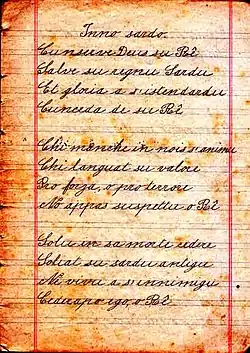 Inno sardo.
Cunservet Deus su Rê
Salve su regnu Sardu
Et gloria a s'istendardu
Cunceda de su Rê

Chi manche in nois s'animu
Chi languat su valore
Pro forza, o pro terrore
No appas suspettu o Rê

Solu in sa morte cedere
Soliat su sardu antigu
Ne vivu a s'innimigu
Cederapo ego, o Rê